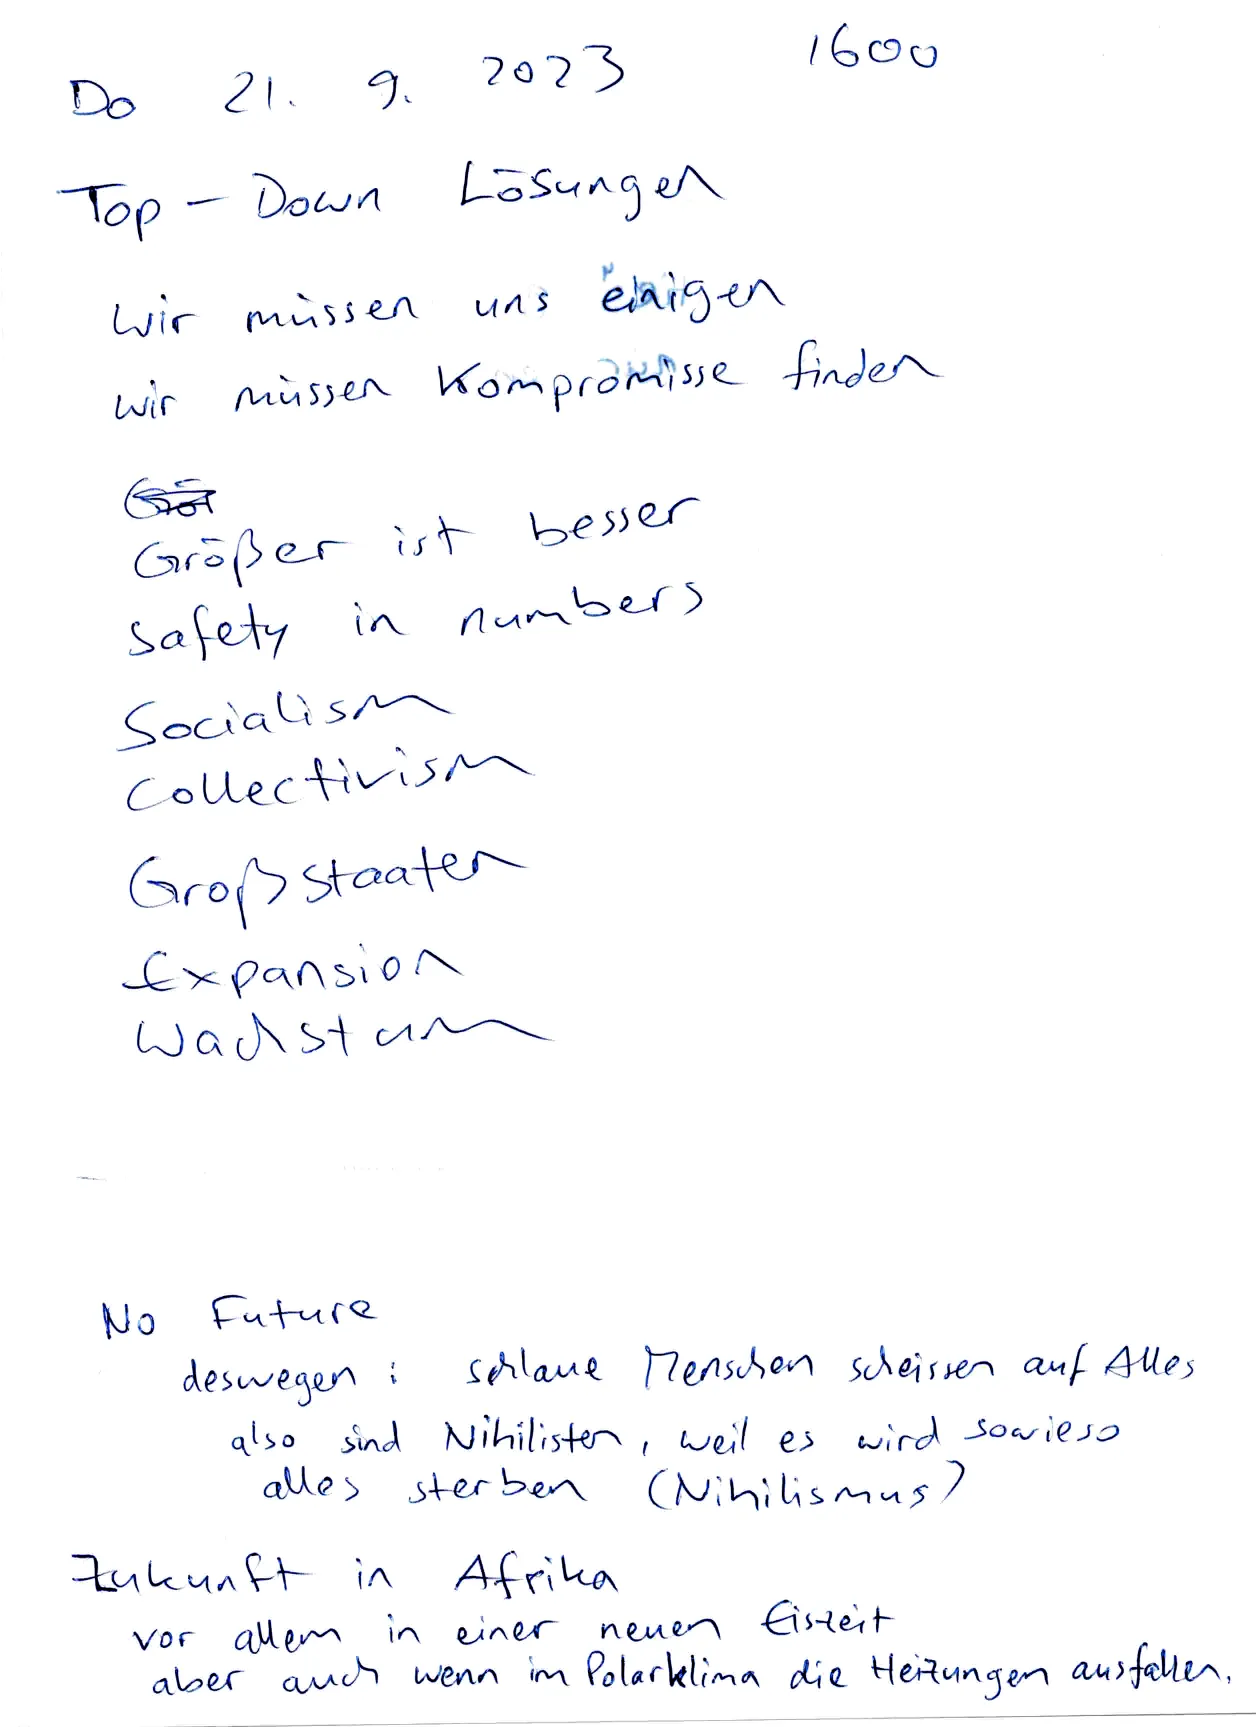 Do 21. 9. 2023 1600
Top - Down Lösungen
wir müssen uns einigen
wir müssen Kompromisse finden
Größer ist besser
safety in numbers
Socialism
Collectivism
Großstaaten
Expansion
Wachstum
No Future
deswegen: schlaue Menschen scheissen auf Alles
also sind Nihilisten, weil es wird sowieso
alles sterben (Nihilismus)
Zukunft in Afrika
vor allem in einer neuen Eiszeit
aber auch wenn im Polarklima die Heizungen ausfallen.